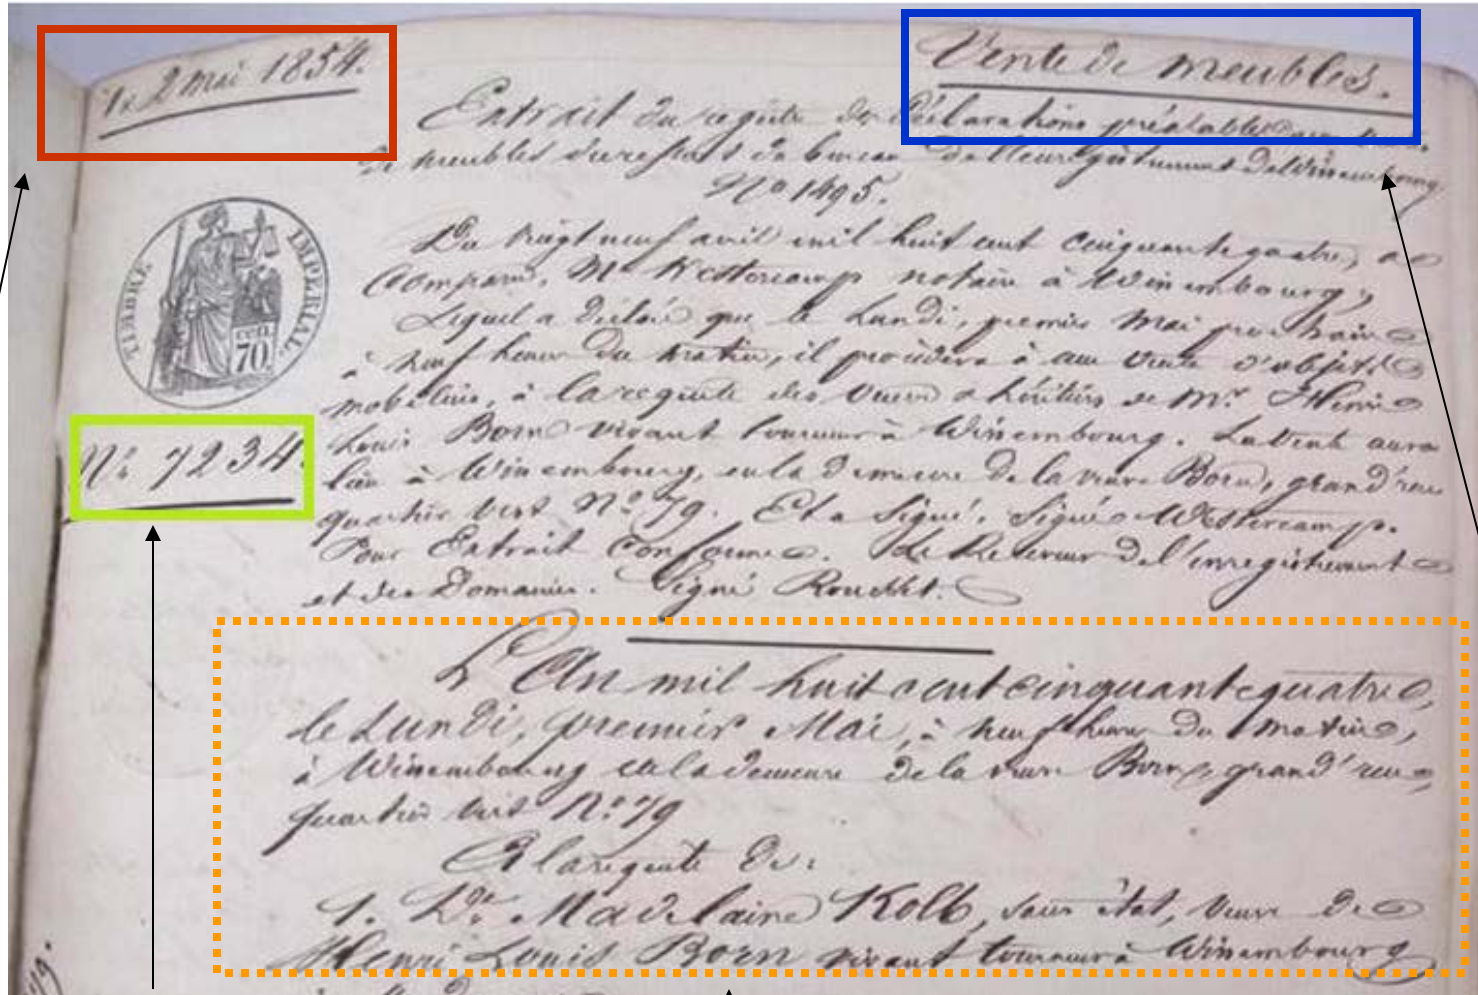 1. 2 Mai 1854.
Vente de meubles.
Extrait du registre des déclarations préalables aux ventes
de meubles du ressort du bureau de l'enregistrement de Wissembourg
No 1495.
TIMBRE IMPERIAL.
cen. 70.
Du vingt neuf avril mil huit cent cinquante quatre, a
Comparu, Me Westercamp notaire à Wissembourg,
Lequel a déclaré que le Lundi, premier Mai prochain
à neuf heures du matin, il procédera à une vente d'objets
mobiliers, à la requête des veuve & héritiers de Mr. Henri
Louis Born vivant tourneur à Wissembourg. La vente aura
No 7234.
lieu à Wissembourg, en la demeure de la veuve Born, grand'rue
quartier vert No 79. Et a signé. Signé Westercamp.
Pour Extrait Conforme. Le Receveur de l'enregistrement
et des Domaines. Signé
L'An mil huit cent cinquante quatre,
le Lundi, premier Mai, à neuf heures du matin,
à Wissembourg en la demeure de la veuve Born, grand'rue,
quartier vert No 79
A la requête de:
1. De Madelaine Kolb, sans état, veuve de
Henri Louis Born vivant tourneur à Wissembourg